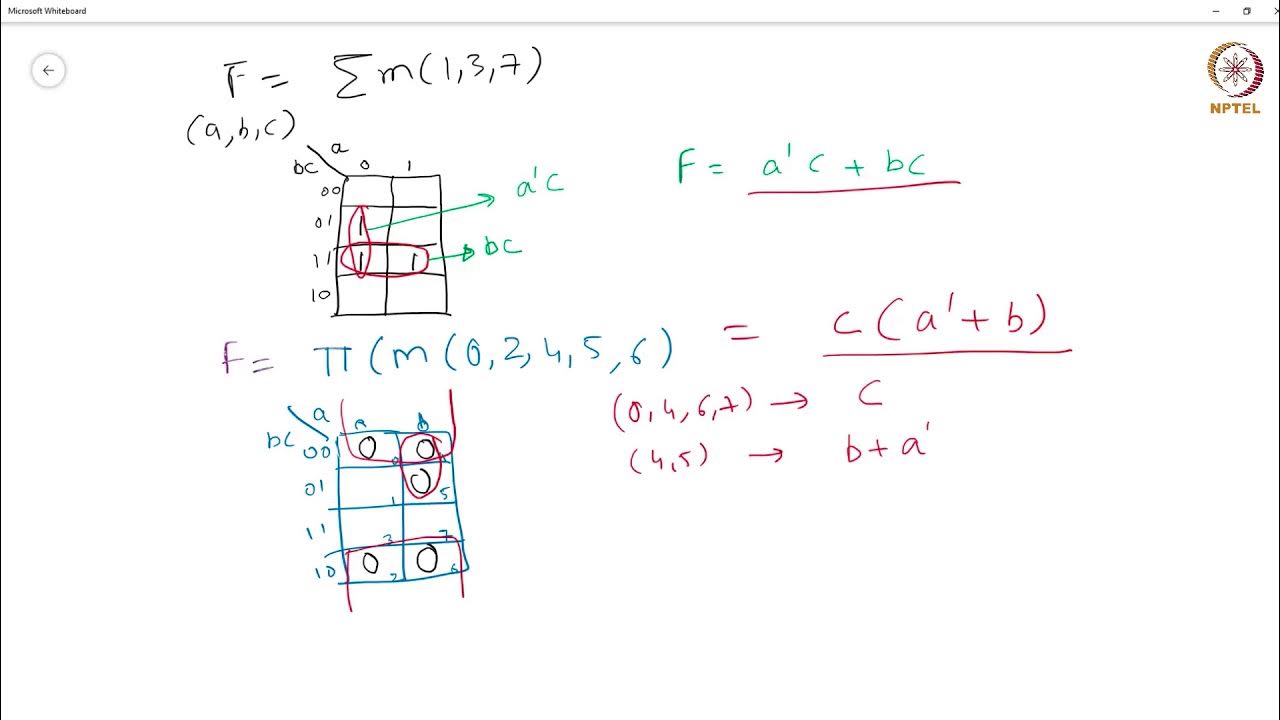 Microsoft Whiteboard
NPTEL
F = Σm(1,3,7)
(a,b,c)
a
bc 0 1
00
01 1
11 1 1
10
a'c
bc
F = a'c + bc
F = π(m(0,2,4,5,6)
= c(a'+b)
(0,4,6,7) → c
(4,5) → b+a'
a
bc
00 0 0 0
01 0 1 5
11 3 7
10 0 2 0 6